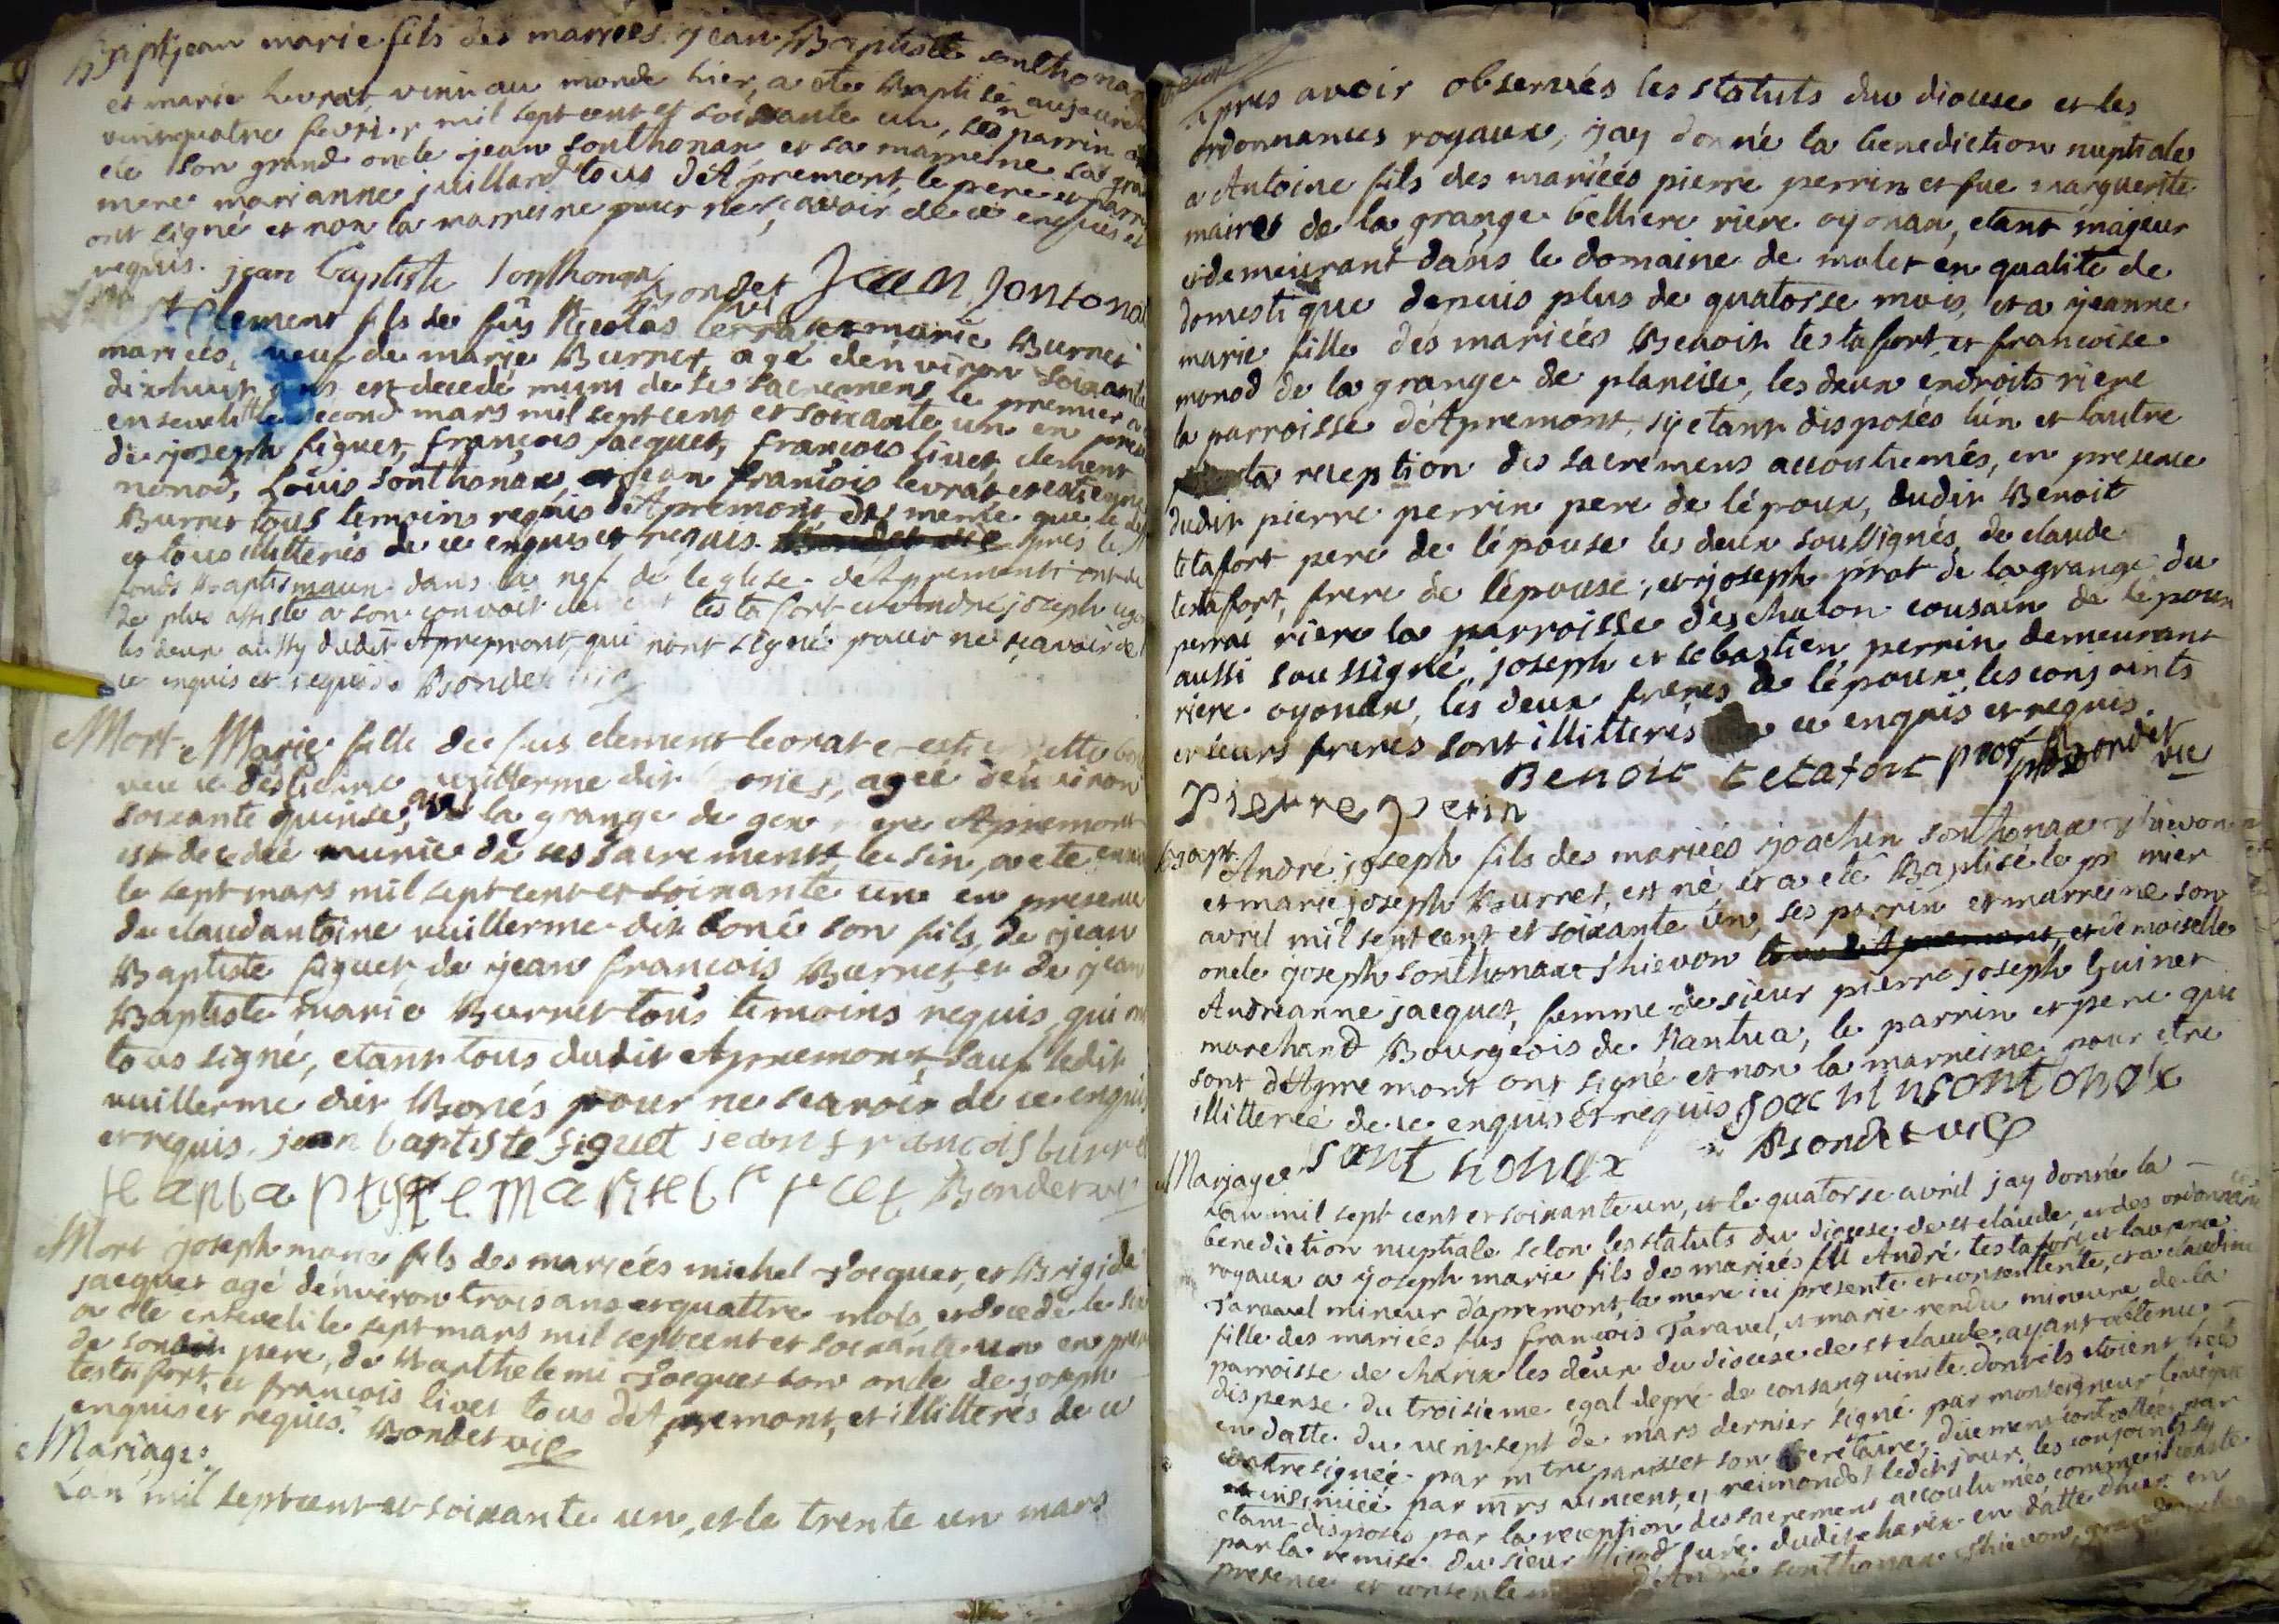 Bapt jean marie fils des mariées jean Baptiste sonthonax
et marie Levrat, venu au monde hier, a ete Baptisé aujourd
vintquatre fevrier mil sept cent et soixante un, ses parrin a
ete son grand oncle jean sonthonax et sa marreine sa gran
mere marianne juillard tous d'Apremont, le pere et parrin
ont signé et non la marreine pour ne sçavoir de ce enquis et
requis. jean baptiste sonthonax Bondet Jean Sontona
Clement fils de fus Nicolas levrat et marie Burnet
mariées, veuf de marie Burnet agé d'environ soixante
dixhuit ans est decedé muni de ses sacremens le premier a
enseveli le second mars mil sept cent et soixante un en presen
de joseph figuet, françois Jacquet, françois livet, clement
monod, Louis Sonthonax, et jean françois levrat et estienne
Burnet tous temoins requis d'Apremont de meme que le
et tous illitterés de ce enquis et requis. Bondet vic après les
fonds Baptismaux dans la nef de leglise d'Apremont ont
de plus assisté a son convoit testafort et André joseph
les deux aussy dudit Apremont qui nont signé pour ne sçavoir de
ce enquis et requis Bondet vic
Mort Marie fille de fus clement levrat
veuve d'estienne vuillerme dit Bonés, ageé d'environ
soixante quinse ans de la grange de gex Apremont
est decedée munie de ses sacrements le sin, a ete
le sept mars mil sept cent et soixante un en presence
de claudantoine vuillerme dit boné son fils, de jean
Baptiste figuet, de jean françois Burnet, et de jean
Baptiste marie Burnet tous temoins requis qui ont
tous signé, etant tous dudit Apremont, sauf ledit
vuillerme dit Bonés pour ne scavoir de ce enquis
et requis. jean baptiste figuet jean françois burne
Jean baptiste marie burnet Bondet vic
Mort joseph marie fils des mariées michel Jacquet, et Brigide
jacquet agé d'environ trois ans et quattre mois, et decedé le six
a ete enseveli le sept mars mil sept cent et soixante un en pres
de son dit pere, de Barthelemi Jacquet son oncle de joseph
testafort, et françois livet tous d'Apremont, et illitterés de ce
enquis et requis. Bondet vic
Mariage
L'an mil sept cent et soixante un, et le trente un mars
apres avoir observés les statuts du diocese et les
ordonnances royaux, jay donné la benediction nuptiale
a Antoine fils des mariées pierre perrin et fue marguerite
maires de la grange belliere riere oyonax, etant majeur
et demeurant dans le domaine de mulet en qualité de
domestique depuis plus de quatorse mois, et a jeanne
marie fille des mariées Benoit testafort et francoise
monod de la grange de planeise, les deux endroits riere
la parroisse d'Apremont, s'y etant disposés l'un et l'autre
la reception des sacremens accoutumés, en presence
dudit pierre perrin pere de l'époux, dudit Benoit
tetafort pere de l'épouse les deux soussignés, de claude
testafort, frere de l'épouse, et joseph prot de la grange du
perrai riere la parroisse d'eschalon cousain de l'époux
aussi soussigné, joseph et sebastien perrin demeurant
riere oyonax, les deux freres de l'époux, les conjoints
et leurs freres sont illitterés de ce enquis et requis.
Benoit tetafort prot Bondet vic
Pierre perin
Bapt. André joseph fils des mariées joachin sonthonax Thievon
et marie joseph Burnet, est né et a eté Baptisé le premier
avril mil sept cent et soixante un, ses parrin et marreine son
oncle joseph sonthonax Thievon tous d'Apremont, et demoiselle
Andréanne jacquet, femme de sieur pierre joseph Guinet
marchand Bourgeois de Nantua, le parrin et pere qui
sont d'Apremont ont signé et non la marreine pour etre
illitterée de ce enquis et requis Joachin sontonax
sont honax Bondet vic
Mariage
L'an mil sept cent et soixante un, et le quatorse avril jay donné la
benediction nuptiale selon les statuts du diocese de st claude, et des ordonnan
royaux a joseph marie fils des mariées fu André testafort et laurence
Taravel mineur d'apremont, la mere ici presente et consentente, et a claudine
fille des mariées fus françois Taravel, et marie rendu mineure de la
parroisse de charix les deux du diocese de st claude, ayant obtenu
dispense du troisieme egal degré de consanguinité dont ils etoient liés
en datte du vint sept de mars dernier signé par monseigneur leveque
contresignée par mtre parisset son secretaire, duement contrôllée par
et insinuée par mrs vincent, et reimondet ledit jour, les conjoints sy
etant disposés par la reception des sacremens accoutumés comme il conste
par la remise du sieur curé dudit charix en datte d'hier en
presence et consentem d'André sonthonax Thievon, grand